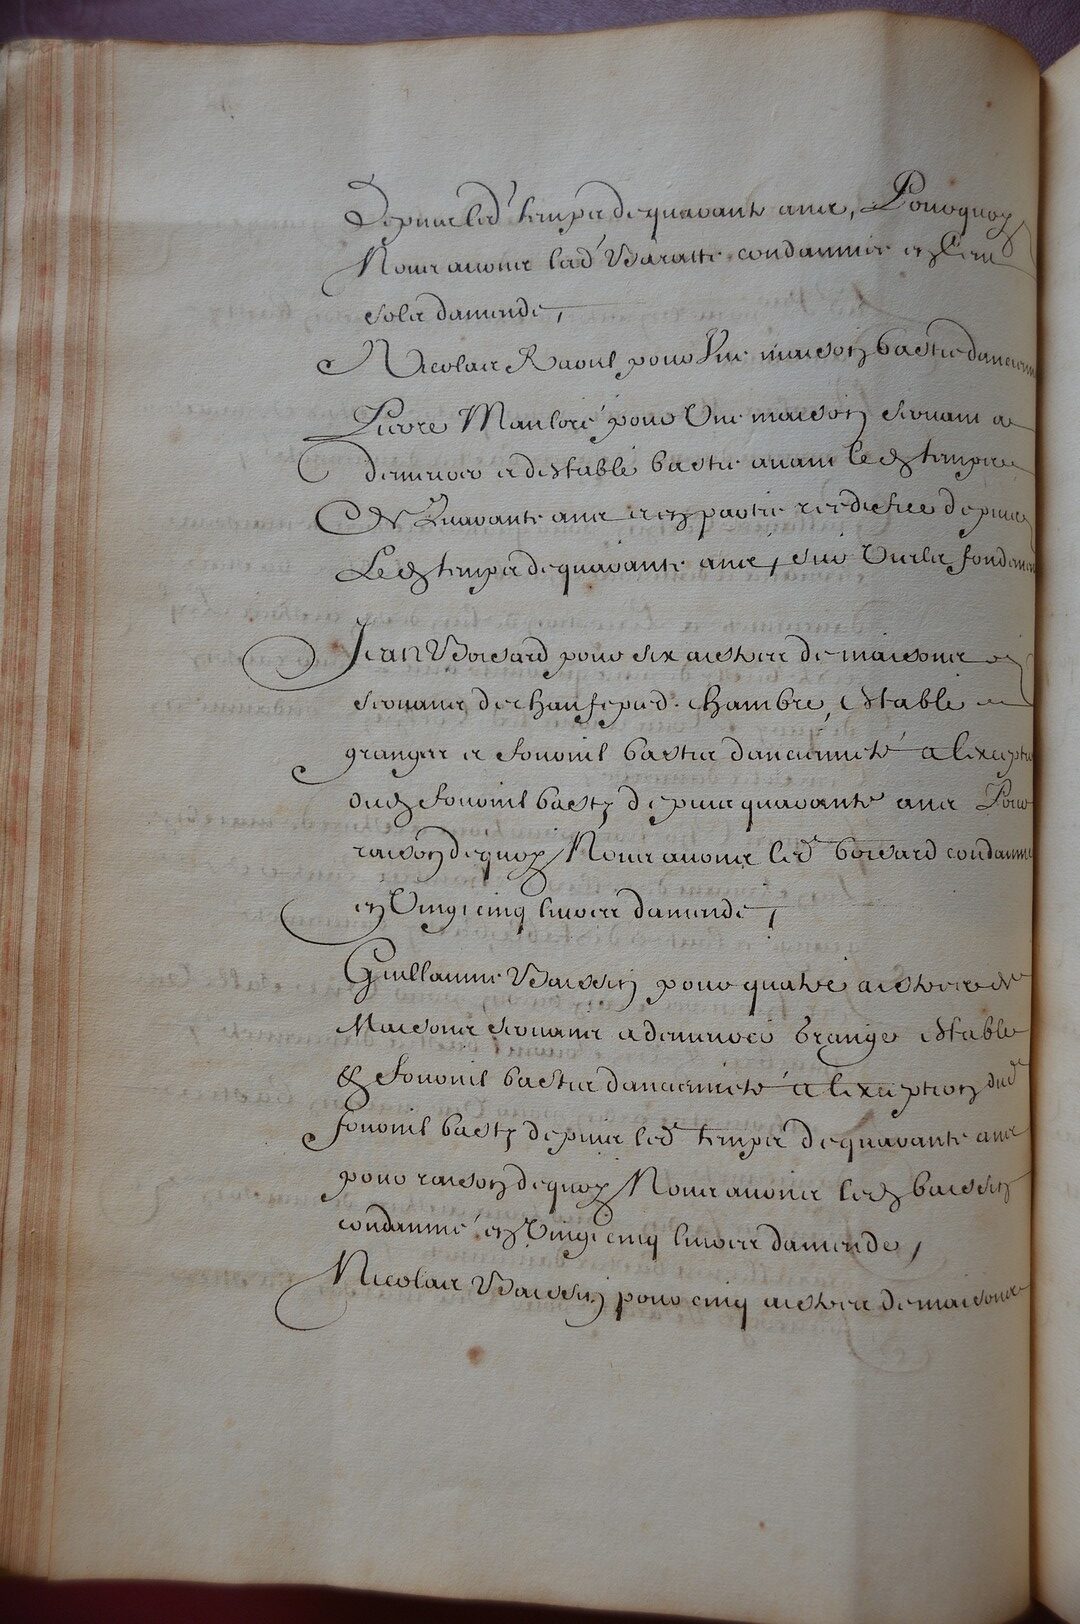 Depuis led' temps de quarante ans, Pourquoy
Nous auons lad' Baratte condamnée en Cent
sols damende,
Nicolas Raoul pour Vne maison bastie dancienn
Pierre Maulore' pour Vne maison seruant a
demeurer et destable bastie auant led temps
de Quarante ans et en partie reedifiee depuis
Led temps de quarante ans, sur Vieils fondemen
Jean Boisard pour six aistres de maisons
seruans de chaufepied chambre, Estable
granges et fournil basties dancienneté a lexceptio
dud fournil basty depuis quarante ans Pour
raison de quoy Nous auons led boisard condamné
en Vingt cinq liures damende,
Guillaume Baissin pour quatre aistres de
Maisons seruans a demeurer Grange Estable
Et fournil basties dancienneté a lexception dud
fournil basty depuis led temps de quarante ans
pour raison de quoy Nous auons led baissin
condamné en Vingt cinq liures damende,
Nicolas Baissin pour cinq aistres de maisons